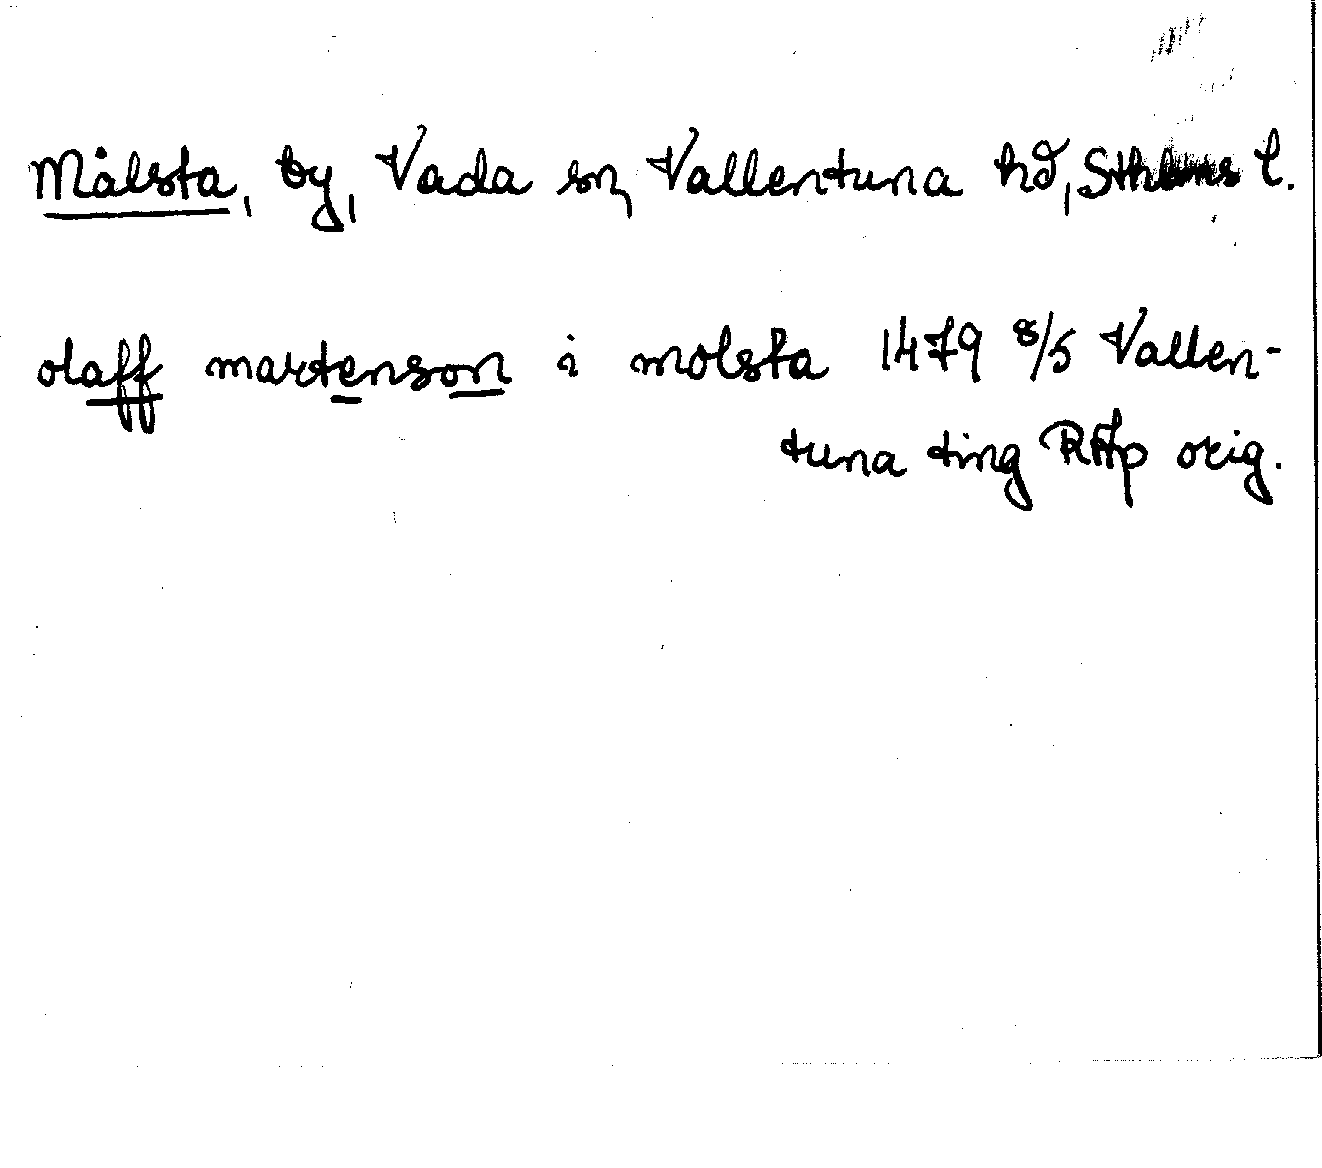 Målsta, by, Vada sn, Vallentuna hd, Sthlms l.
olaff martenson i molsta 1479 8/5 Vallen-
tuna ting RAp orig.